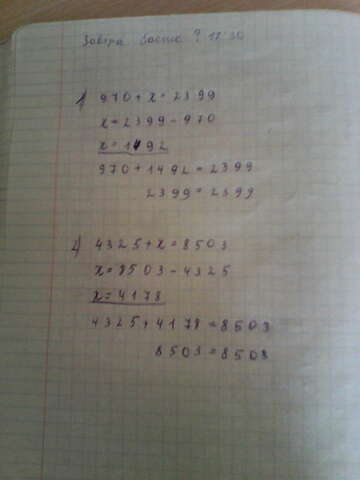 Завтра ? 12 30
1) 970 + x = 2399
x = 2399 - 970
x = 1492
970 + 1492 = 2399
2399 = 2399
2) 4325 + x = 8503
x = 8503 - 4325
x = 4178
4325 + 4178 = 8503
8503 = 8503